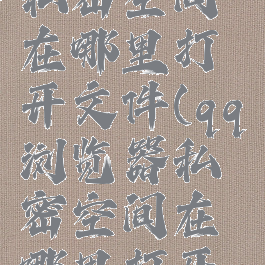 私密空间
在哪里打
开文件(qq
浏览器私
密空间在
哪里打开